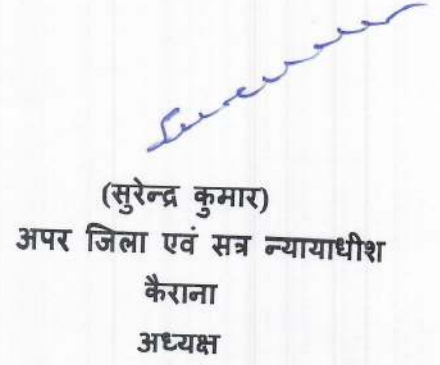 (सुरेन्द्र कुमार)
अपर जिला एवं सत्र न्यायाधीश
कैराना
अध्यक्ष